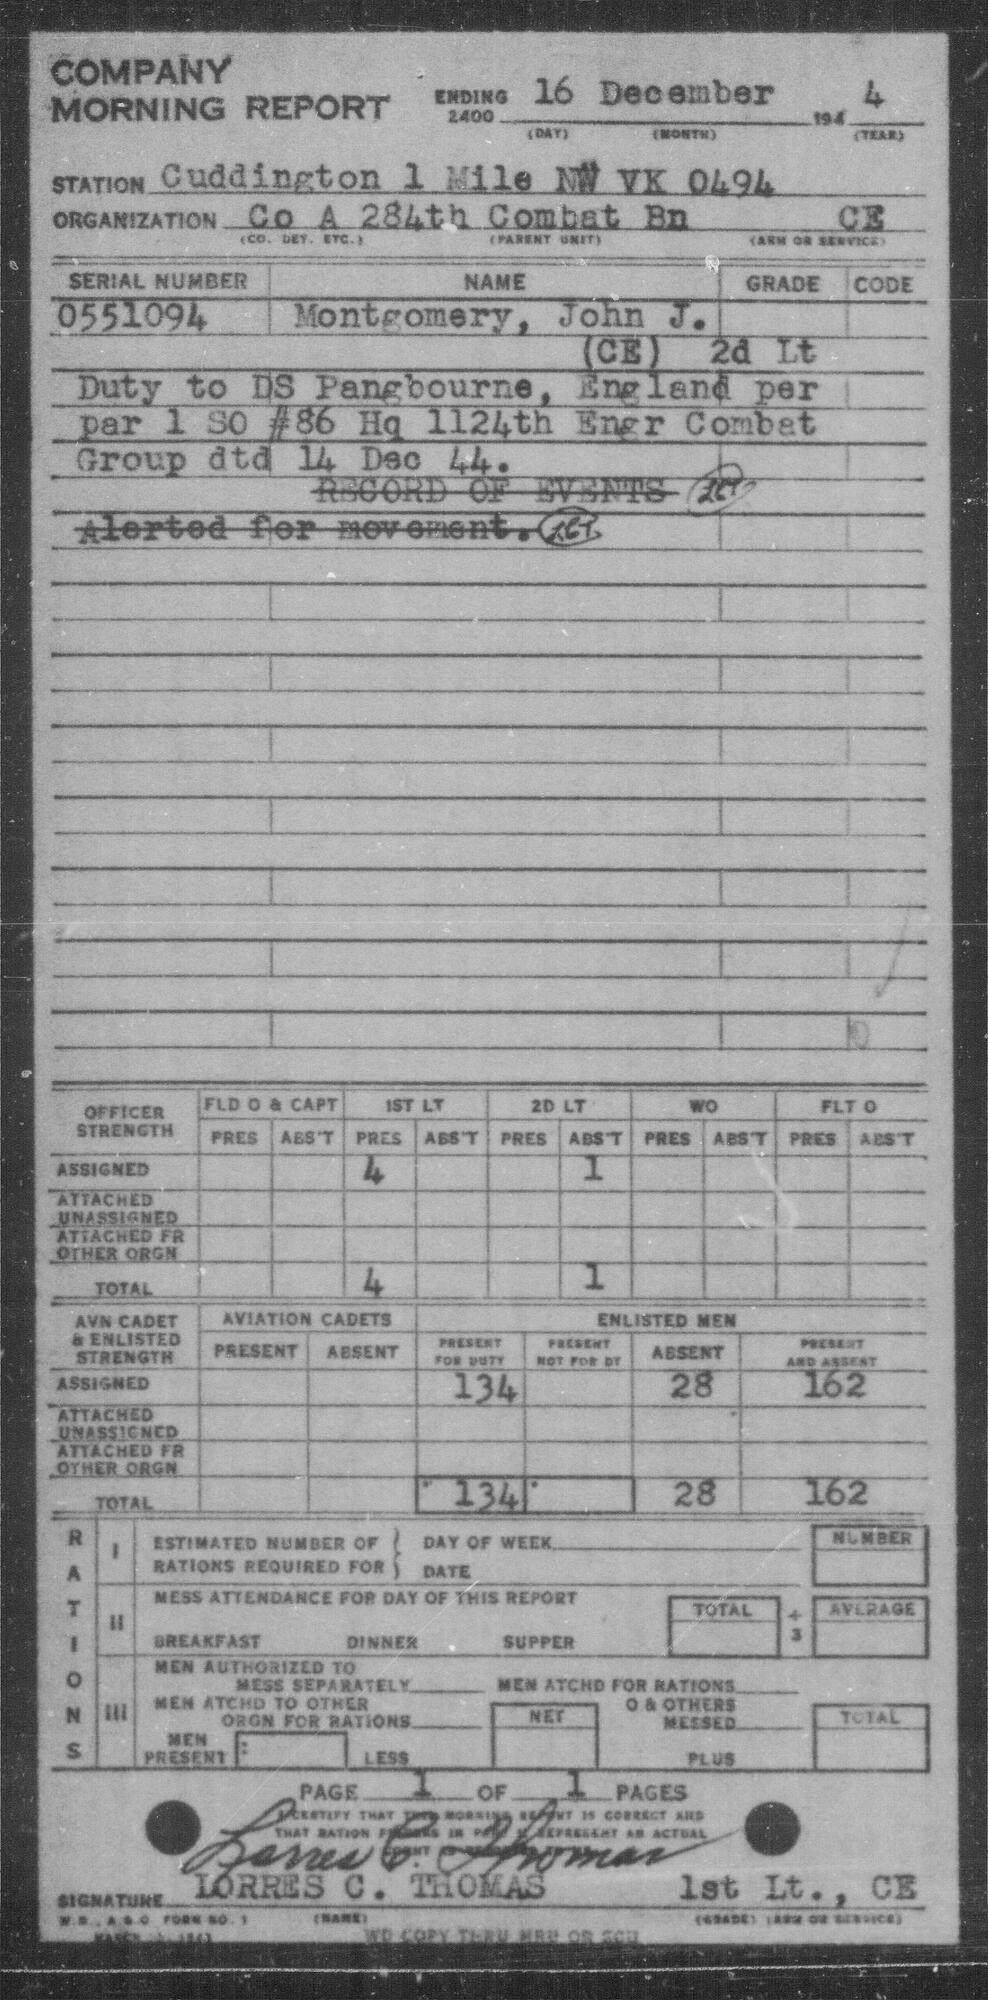 COMPANY
MORNING REPORT ENDING 2400 16 December 194 4
(DAY) (MONTH) (YEAR)
STATION Cuddington 1 Mile NW VK 0494
ORGANIZATION Co A 284th Combat Bn CE
(CO. DET. ETC.) (PARENT UNIT) (ARM OR SERVICE)
SERIAL NUMBER NAME GRADE CODE
0551094 Montgomery, John J.
(CE) 2d Lt
Duty to DS Pangbourne, England per
par 1 SO #86 Hq 1124th Engr Combat
Group dtd 14 Dec 44.
RECORD OF EVENTS LCT
Alerted for movement. LCT
OFFICER STRENGTH FLD O & CAPT 1ST LT 2D LT WO FLT O
PRES ABS'T PRES ABS'T PRES ABS'T PRES ABS'T PRES ABS'T
ASSIGNED 4 1
ATTACHED UNASSIGNED
ATTACHED FR OTHER ORGN
TOTAL 4 1
AVN CADET & ENLISTED STRENGTH AVIATION CADETS ENLISTED MEN
PRESENT ABSENT PRESENT FOR DUTY PRESENT NOT FOR DY ABSENT PRESENT AND ABSENT
ASSIGNED 134 28 162
ATTACHED UNASSIGNED
ATTACHED FR OTHER ORGN
TOTAL 134 28 162
RATIONS
I ESTIMATED NUMBER OF DAY OF WEEK NUMBER
RATIONS REQUIRED FOR DATE
MESS ATTENDANCE FOR DAY OF THIS REPORT
II TOTAL ÷ 3 AVERAGE
BREAKFAST DINNER SUPPER
MEN AUTHORIZED TO
MESS SEPARATELY MEN ATCHD FOR RATIONS
III MEN ATCHD TO OTHER O & OTHERS
ORGN FOR RATIONS NET MESSED TOTAL
MEN PRESENT LESS PLUS
PAGE 1 OF 1 PAGES
I CERTIFY THAT THIS MORNING REPORT IS CORRECT AND
THAT RATION FIGURES IN PART REPRESENT AN ACTUAL
Lorres C. Thomas
SIGNATURE LORRES C. THOMAS 1st Lt., CE
W.D., A.G.O. FORM NO. 1 (NAME) (GRADE) (ARM OR SERVICE)
MARCH 1943 WD COPY THRU MRU OR SCU